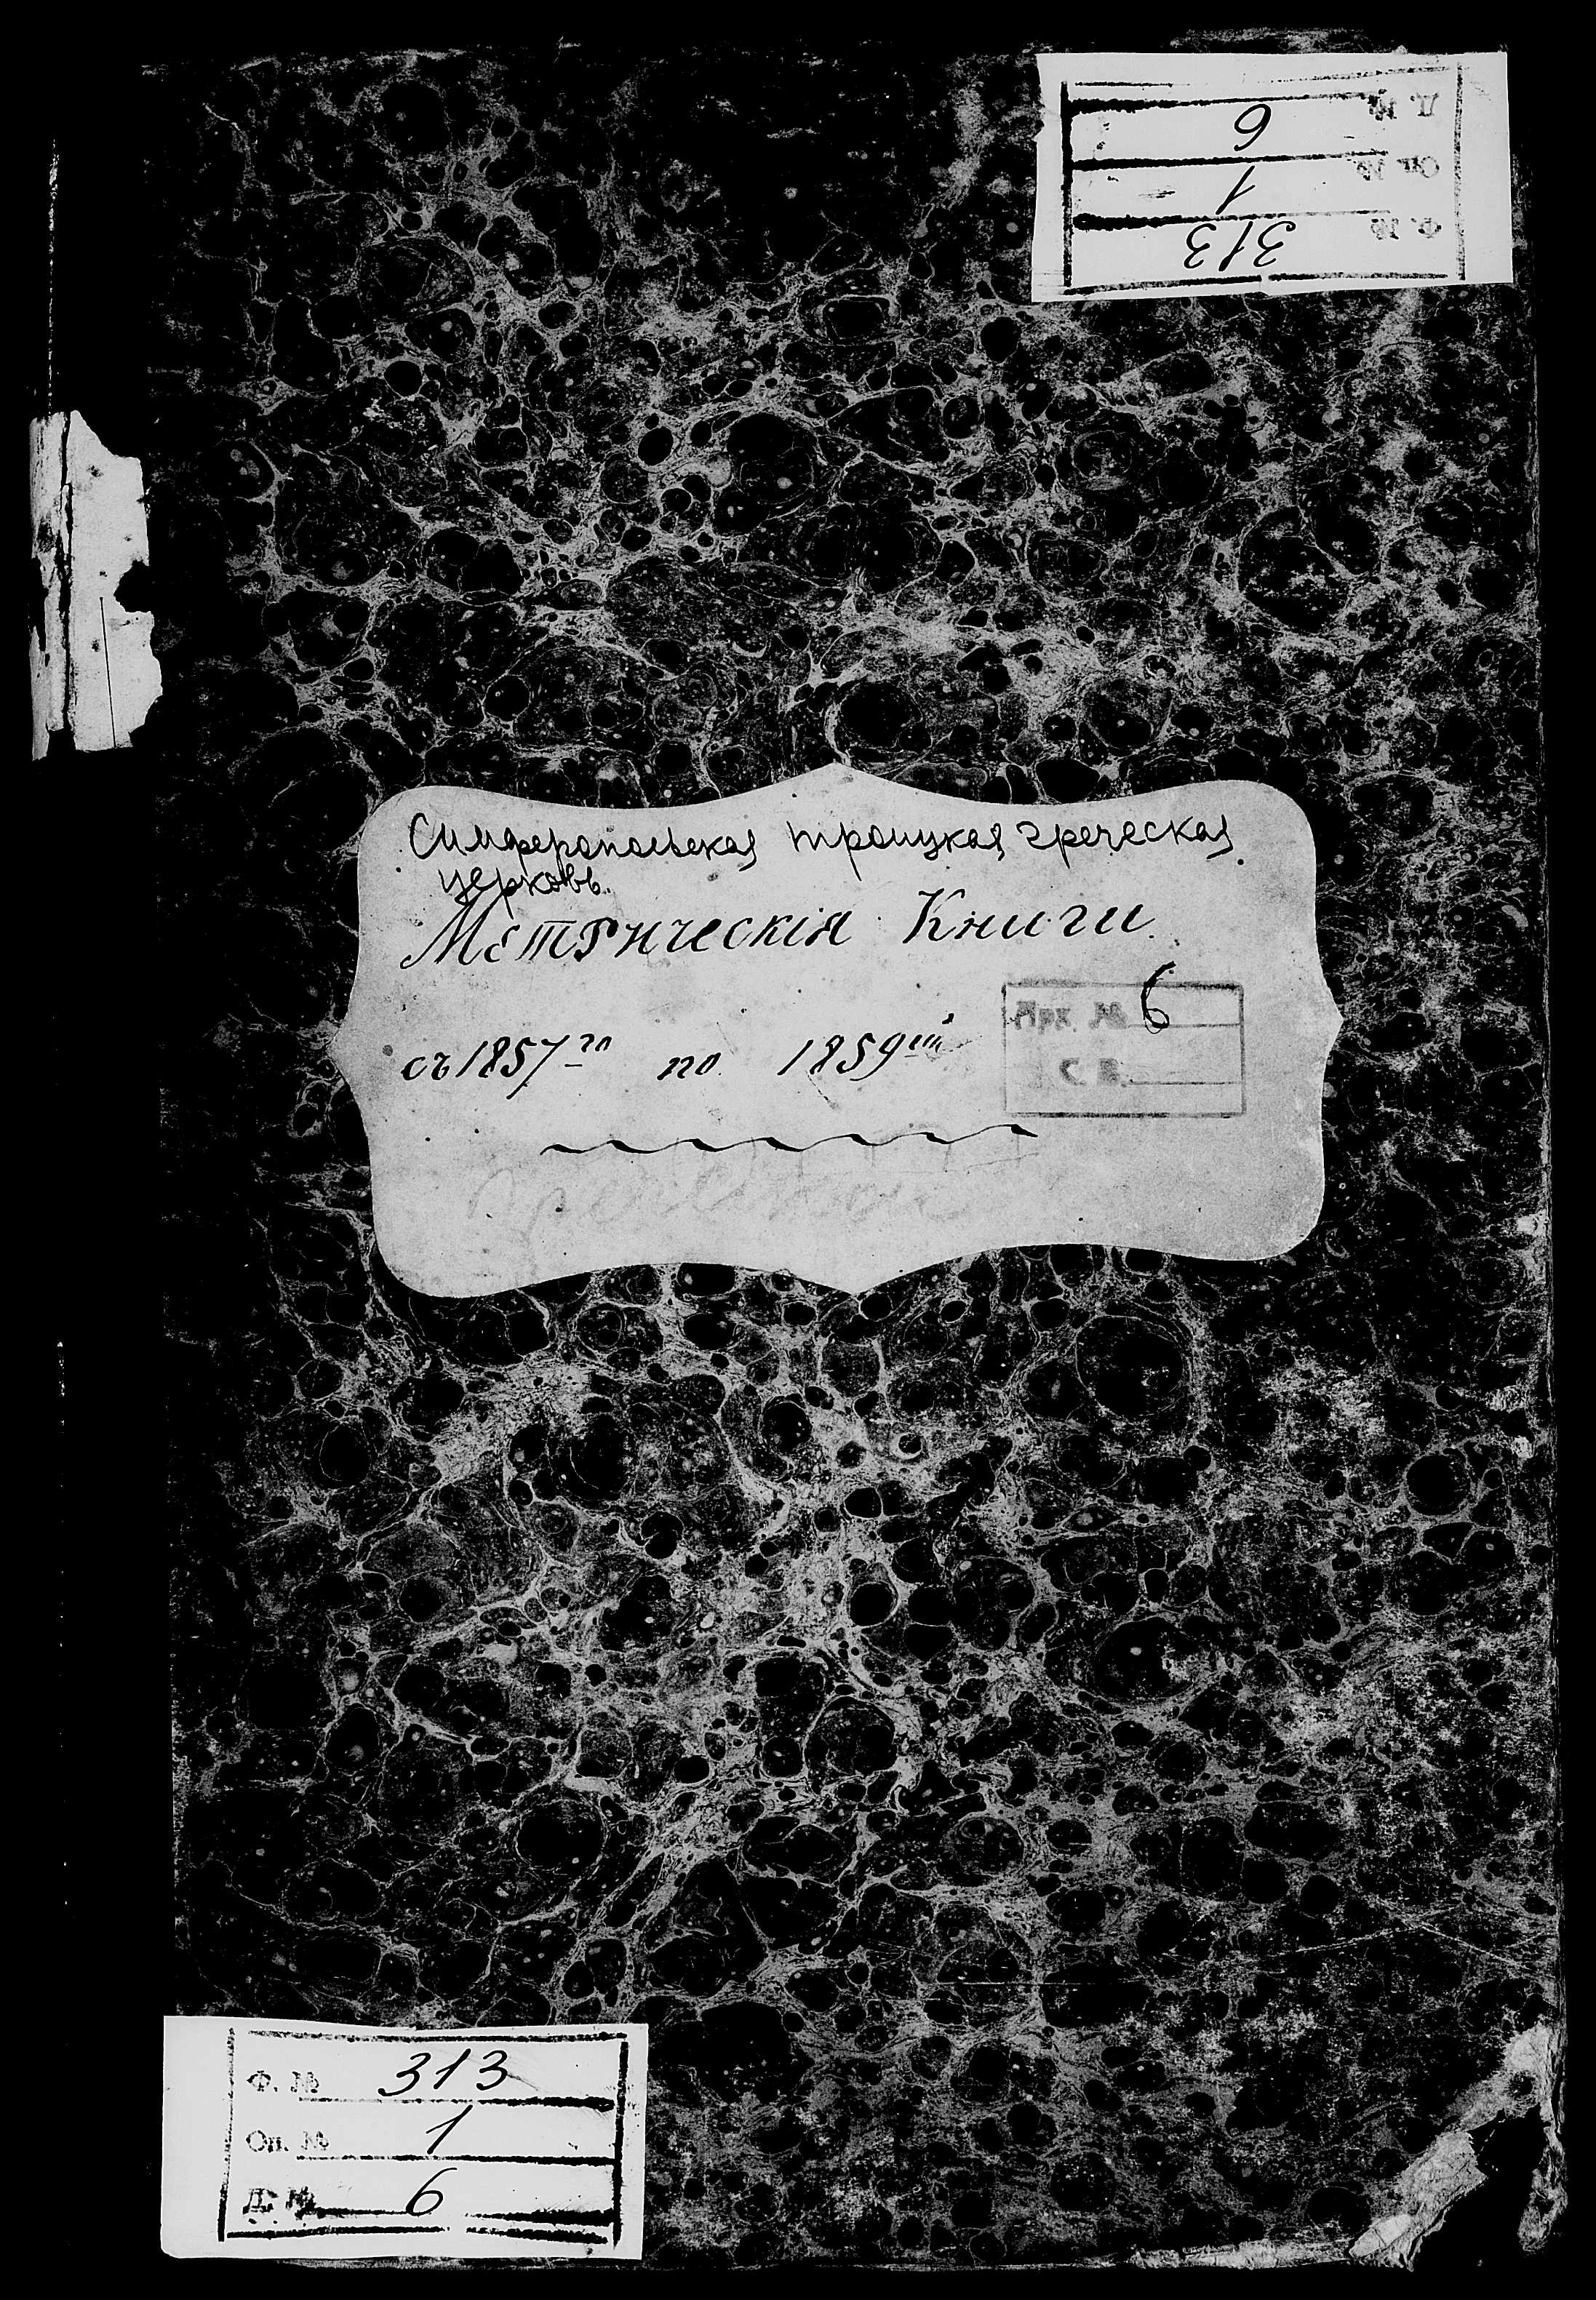 Д. № 6
Оп. № 1
Ф. № 313
Симферопольская троицкая греческая
церковь.
Метрическія Книги
съ 1857го по 1859ый
Арх. № 6
С. В.
Ф. № 313
Оп. № 1
Д. № 6